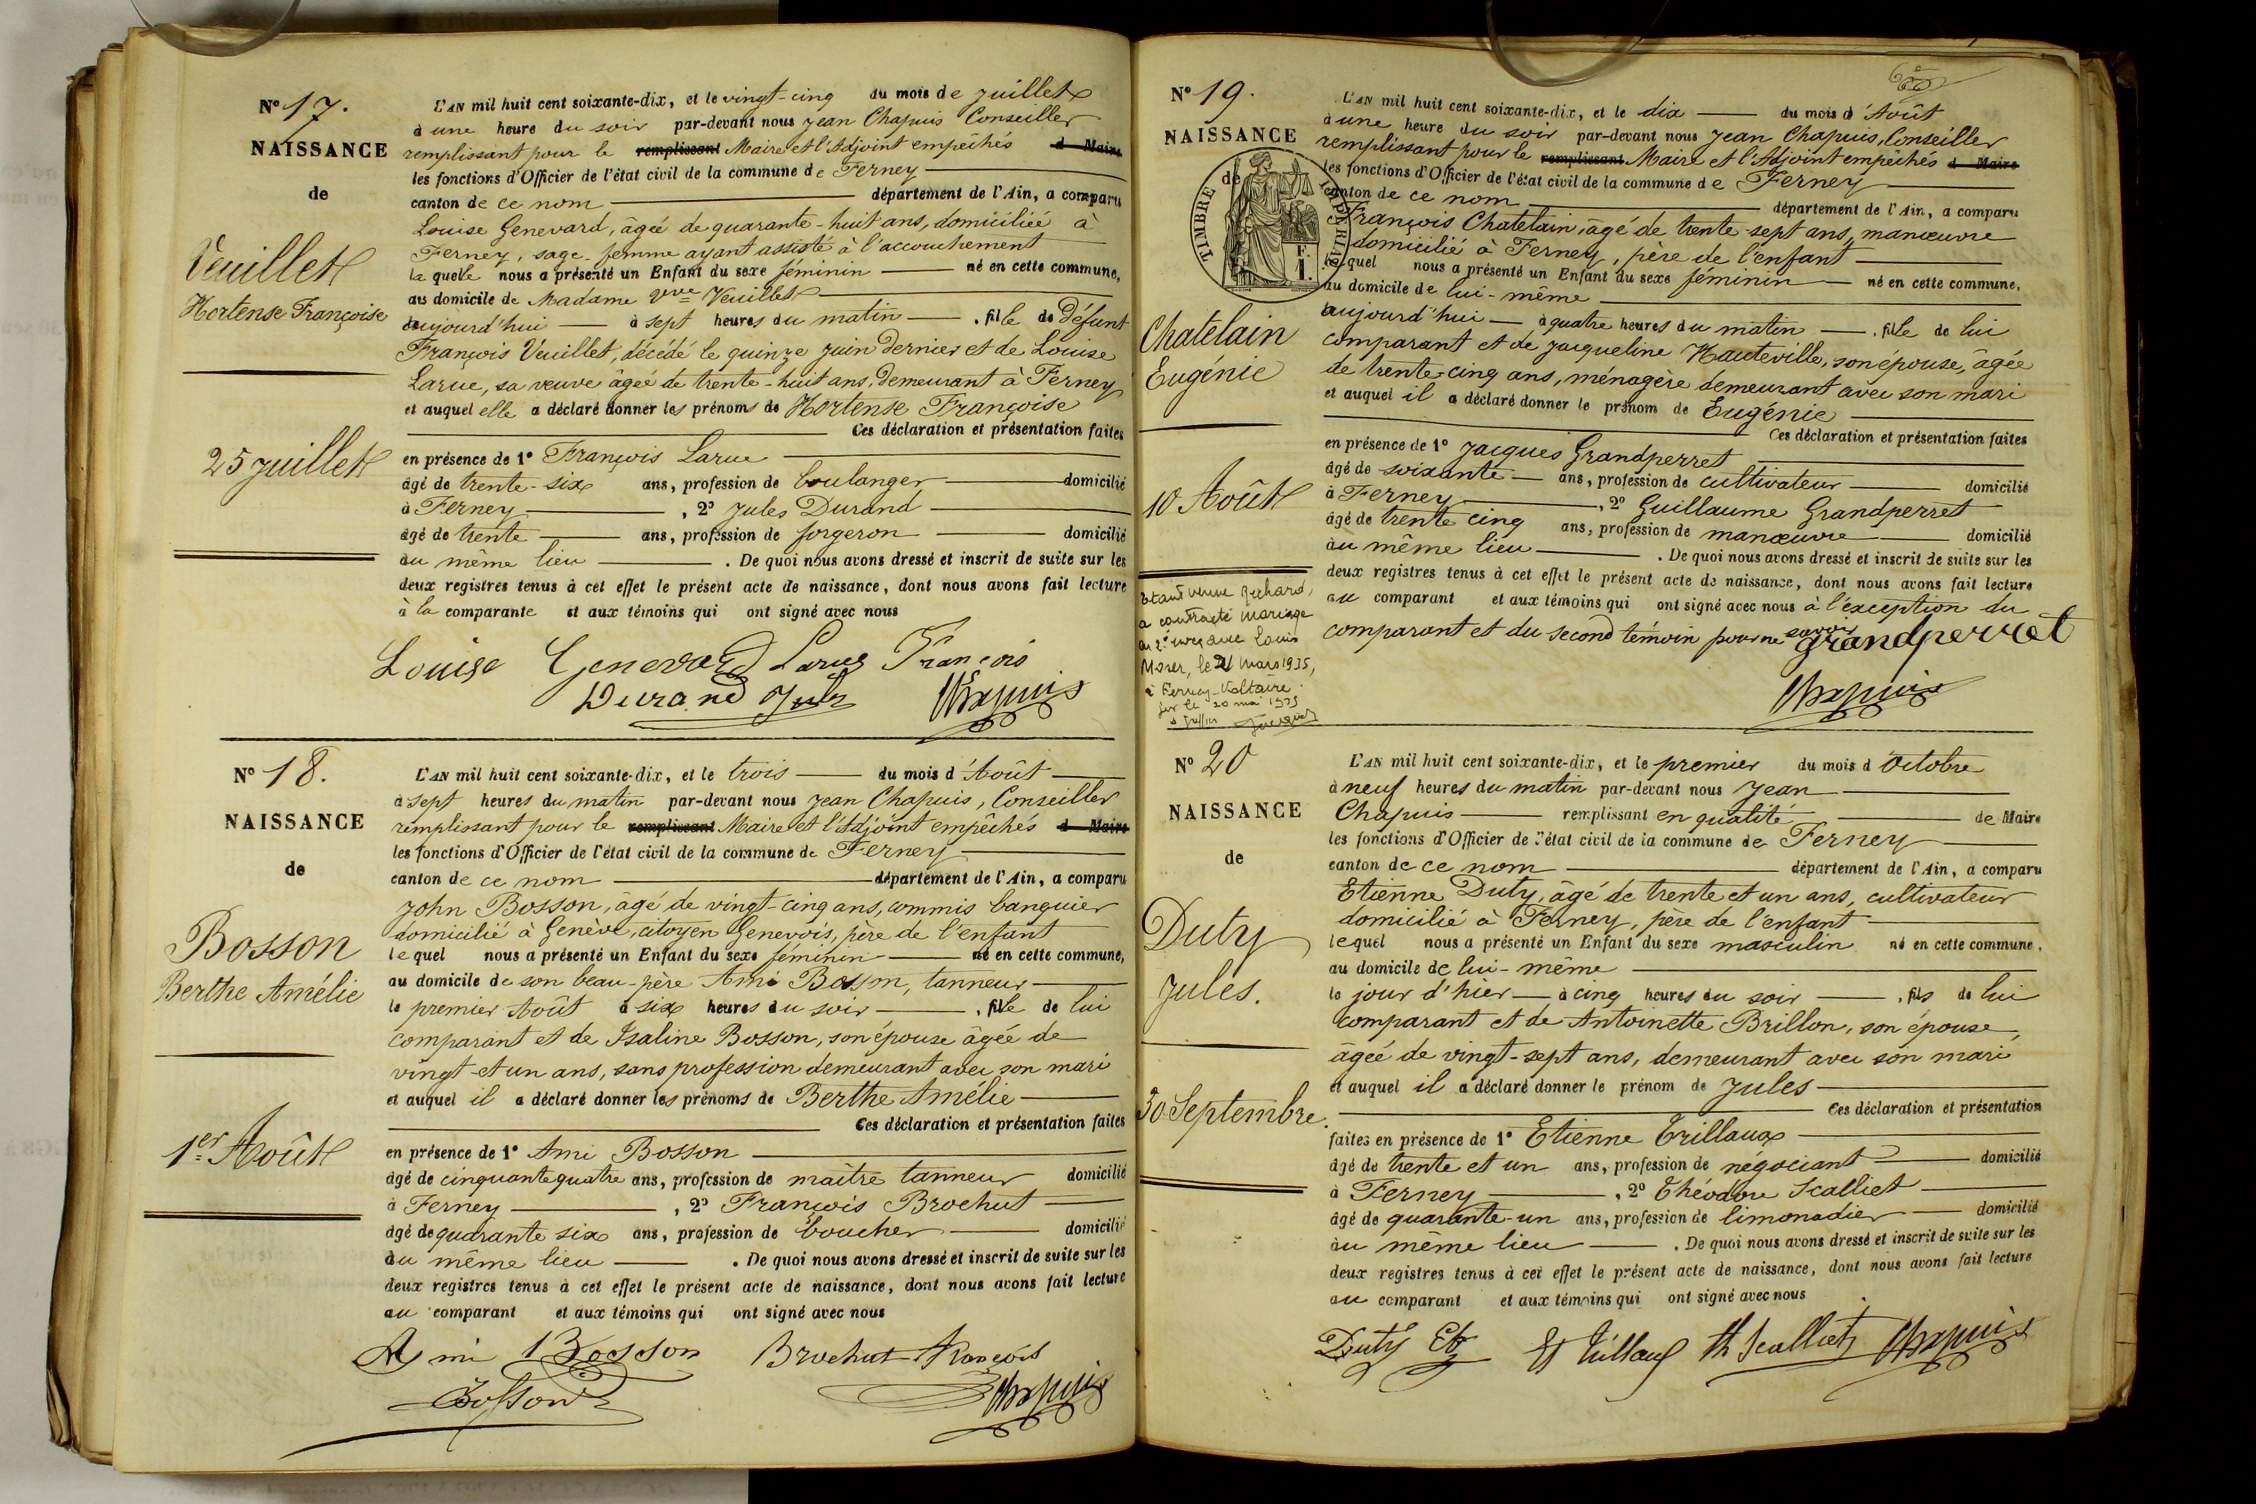 N° 17.
NAISSANCE
de
Veuillet
Hortense Françoise
25 juillet
L'AN mil huit cent soixante-dix, et le vingt-cinq du mois de juillet
à une heure du soir par-devant nous Jean Chapuis Conseiller
remplissant pour le remplissant Maire et l'Adjoint empêchés d Maire
les fonctions d'Officier de l'état civil de la commune de Ferney
canton de ce nom département de l'Ain, a comparu
Louise Genevard, âgée de quarante-huit ans, domiciliée à
Ferney, sage-femme ayant assisté à l'accouchement
la quelle nous a présenté un Enfant du sexe féminin né en cette commune,
au domicile de Madame Vve Veuillet
aujourd'hui à sept heures du matin , fille de Défunt
François Veuillet, décédé le quinze juin dernier et de Louise
Larue, sa veuve âgée de trente-huit ans, demeurant à Ferney
et auquel elle a déclaré donner les prénoms de Hortense Françoise
Ces déclaration et présentation faites
en présence de 1° François Larue
âgé de trente-six ans, profession de boulanger domicilié
à Ferney , 2° Jules Durand
âgé de trente ans, profession de forgeron domicilié
au même lieu . De quoi nous avons dressé et inscrit de suite sur les
deux registres tenus à cet effet le présent acte de naissance, dont nous avons fait lecture
à la comparante et aux témoins qui ont signé avec nous
Louise Genevard Larue François
Durand Jules Chapuis
N° 18.
NAISSANCE
de
Bosson
Berthe Amélie
1er Août
L'AN mil huit cent soixante-dix, et le trois du mois d'Août
à sept heures du matin par-devant nous Jean Chapuis, Conseiller
remplissant pour le remplissant Maire et l'Adjoint empêchés d Maire
les fonctions d'Officier de l'état civil de la commune de Ferney
canton de ce nom département de l'Ain, a comparu
John Bosson, âgé de vingt-cinq ans, commis banquier
domicilié à Genève, citoyen Genevois, père de l'enfant
lequel nous a présenté un Enfant du sexe féminin né en cette commune,
au domicile de son beau-père Ami Bosson, tanneur
le premier Août à six heures du soir , fille de lui
comparant et de Isaline Bosson, son épouse âgée de
vingt-et un ans, sans profession demeurant avec son mari
et auquel il a déclaré donner les prénoms de Berthe Amélie
Ces déclaration et présentation faites
en présence de 1° Ami Bosson
âgé de cinquante quatre ans, profession de maître tanneur domicilié
à Ferney , 2° François Brochut
âgé de quarante six ans, profession de boucher domicilié
au même lieu . De quoi nous avons dressé et inscrit de suite sur les
deux registres tenus à cet effet le présent acte de naissance, dont nous avons fait lecture
au comparant et aux témoins qui ont signé avec nous
Ami Bosson Brochut François
Bosson Chapuis
N° 19.
NAISSANCE
de
TIMBRE IMPERIAL
1 F.
Chatelain
Eugénie
10 Août
Etant veuve Richard,
a contracté mariage
en 2es noces avec Louis
Moser, le 21 mars 1935,
à Ferney-Voltaire.
le 20 mai 1935
L'AN mil huit cent soixante-dix, et le dix du mois d'Août
à une heure du soir par-devant nous Jean Chapuis, Conseiller
remplissant pour le remplissant Maire et l'Adjoint empêchés d Maire
les fonctions d'Officier de l'état civil de la commune de Ferney
canton de ce nom département de l'Ain, a comparu
François Chatelain, âgé de trente-sept ans, manœuvre
domicilié à Ferney, père de l'enfant
lequel nous a présenté un Enfant du sexe féminin né en cette commune,
au domicile de lui-même
aujourd'hui à quatre heures du matin , fille de lui
comparant et de Jacqueline Hauteville, son épouse, âgée
de trente-cinq ans, ménagère demeurant avec son mari
et auquel il a déclaré donner le prénom de Eugénie
Ces déclaration et présentation faites
en présence de 1° Jacques Grandperret
âgé de soixante ans, profession de cultivateur domicilié
à Ferney , 2° Guillaume Grandperret
âgé de trente cinq ans, profession de manœuvre domicilié
au même lieu . De quoi nous avons dressé et inscrit de suite sur les
deux registres tenus à cet effet le présent acte de naissance, dont nous avons fait lecture
au comparant et aux témoins qui ont signé avec nous à l'exception du
comparant et du second témoin pour ne savoir
grandperret
Chapuis
N° 20
NAISSANCE
de
Duty
Jules.
30 Septembre.
L'AN mil huit cent soixante-dix, et le premier du mois d'Octobre
à neuf heures du matin par-devant nous Jean
Chapuis remplissant en qualité de Maire
les fonctions d'Officier de l'état civil de la commune de Ferney
canton de ce nom département de l'Ain, a comparu
Etienne Duty, âgé de trente et un ans, cultivateur
domicilié à Ferney, père de l'enfant
lequel nous a présenté un Enfant du sexe masculin né en cette commune,
au domicile de lui-même
le jour d'hier à cinq heures du soir , fils de lui
comparant et de Antoinette Brillon, son épouse,
âgée de vingt-sept ans, demeurant avec son mari
et auquel il a déclaré donner le prénom de Jules
Ces déclaration et présentation
faites en présence de 1° Etienne Trillaux
âgé de trente et un ans, profession de négociant domicilié
à Ferney , 2° Théodore Scalliet
âgé de quarante-un ans, profession de limonadier domicilié
au même lieu . De quoi nous avons dressé et inscrit de suite sur les
deux registres tenus à cet effet le présent acte de naissance, dont nous avons fait lecture
au comparant et aux témoins qui ont signé avec nous
Duty Et Et Trillaux Th Scalliet Chapuis